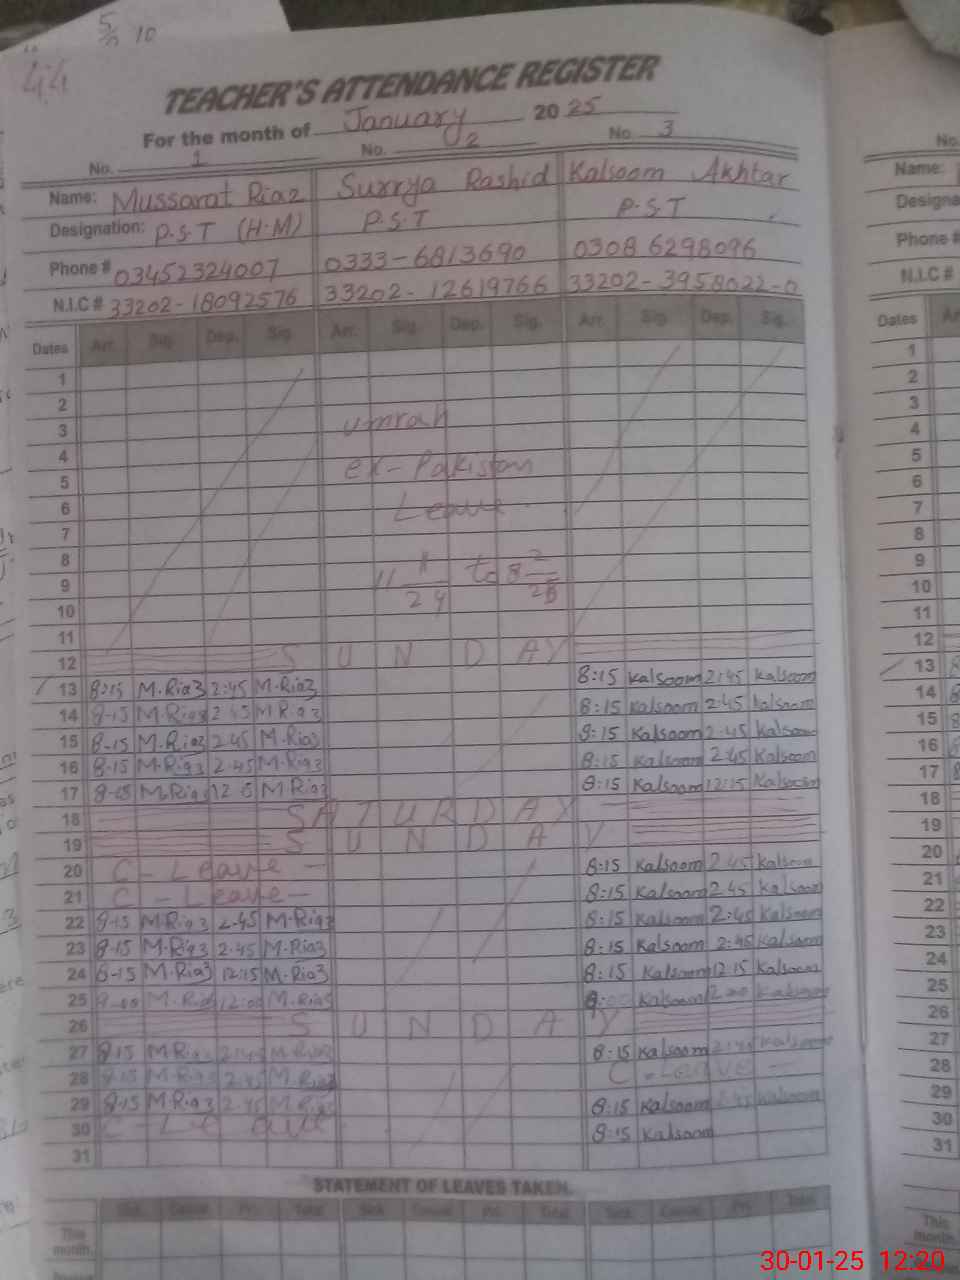 5/5 10
44
TEACHER'S ATTENDANCE REGISTER
For the month of January 2025
No. 1 No. 2 No. 3
Name: Mussarat Riaz Surrya Rashid Kalsoom Akhtar
Designation: P.S.T (H.M) P.S.T P.S.T
Phone # 03452324007 0333-6813690 0308 6298096
N.I.C # 33202-18092576 33202-12619766 33202-3958022-0
Dates Arr. Sig. Dep. Sig. Arr. Sig. Dep. Sig. Arr. Sig. Dep. Sig.
1
2
3 umrah
4
5 ex-Pakistan
6 Leave
7
8
9 11 11/24 to 8 2/25
10
11
12 SUNDAY
13 8:15 M.Riaz 2:45 M.Riaz 8:15 Kalsoom 2:45 Kalsoom
14 8-15 M.Riaz 2 45 M.Riaz 8:15 Kalsoom 2:45 Kalsoom
15 8-15 M.Riaz 2.45 M.Riaz 8:15 Kalsoom 2:45 Kalsoom
16 8-15 M.Riaz 2.45 M.Riaz 8:15 Kalsoom 2:45 Kalsoom
17 8-15 M.Riaz M.Riaz 8:15 Kalsoom 12:15 Kalsoom
18 SATURDAY
19 SUNDAY
20 C-Leave- 8:15 Kalsoom 2 45 Kalsoom
21 C-Leave- 8:15 Kalsoom 2 45 Kalsoom
22 8-15 M.Riaz 2-45 M.Riaz 8:15 Kalsoom 2:45 Kalsoom
23 8-15 M.Riaz 2-45 M.Riaz 8:15 Kalsoom 2:45 Kalsoom
24 8-15 M.Riaz 12:15 M.Riaz 8:15 Kalsoom 12:15 Kalsoom
25 8-00 M.Riaz 12:00 M.Riaz Kalsoom Kalsoom
26 SUNDAY
27 8-15 M.Riaz 2:45 M.Riaz 8:15 Kalsoom 2:45 Kalsoom
28 8-15 M.Riaz 2:45 M.Riaz C-Leave-
29 8-15 M.Riaz 2.45 M.Riaz 8:15 Kalsoom 2:45 Kalsoom
30 C-Leave 8:15 Kalsoom
31
STATEMENT OF LEAVES TAKEN.
Sick Casual Pri. Total Sick Casual Pri. Total Sick Casual Pri. Total
This month.
No.
Name:
Designa
Phone #
N.I.C #
Dates Ar
1
2
3
4
5
6
7
8
9
10
11
12
13 8
14
15
16
17
18
19
20
21
22
23
24
25
26
27
28
29
30
31
This month.
30-01-25 12:20